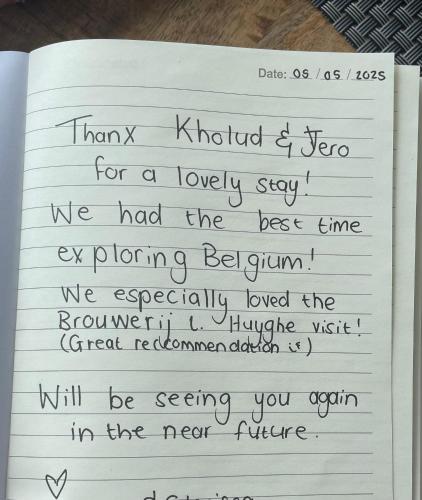 Date: 05 / 05 / 2025
Thanx Kholud & Jero
for a lovely stay!
We had the best time
exploring Belgium!
We especially loved the
Brouwerij L. Huyghe visit!
(Great reckommendation :))
Will be seeing you again
in the near future.
♡